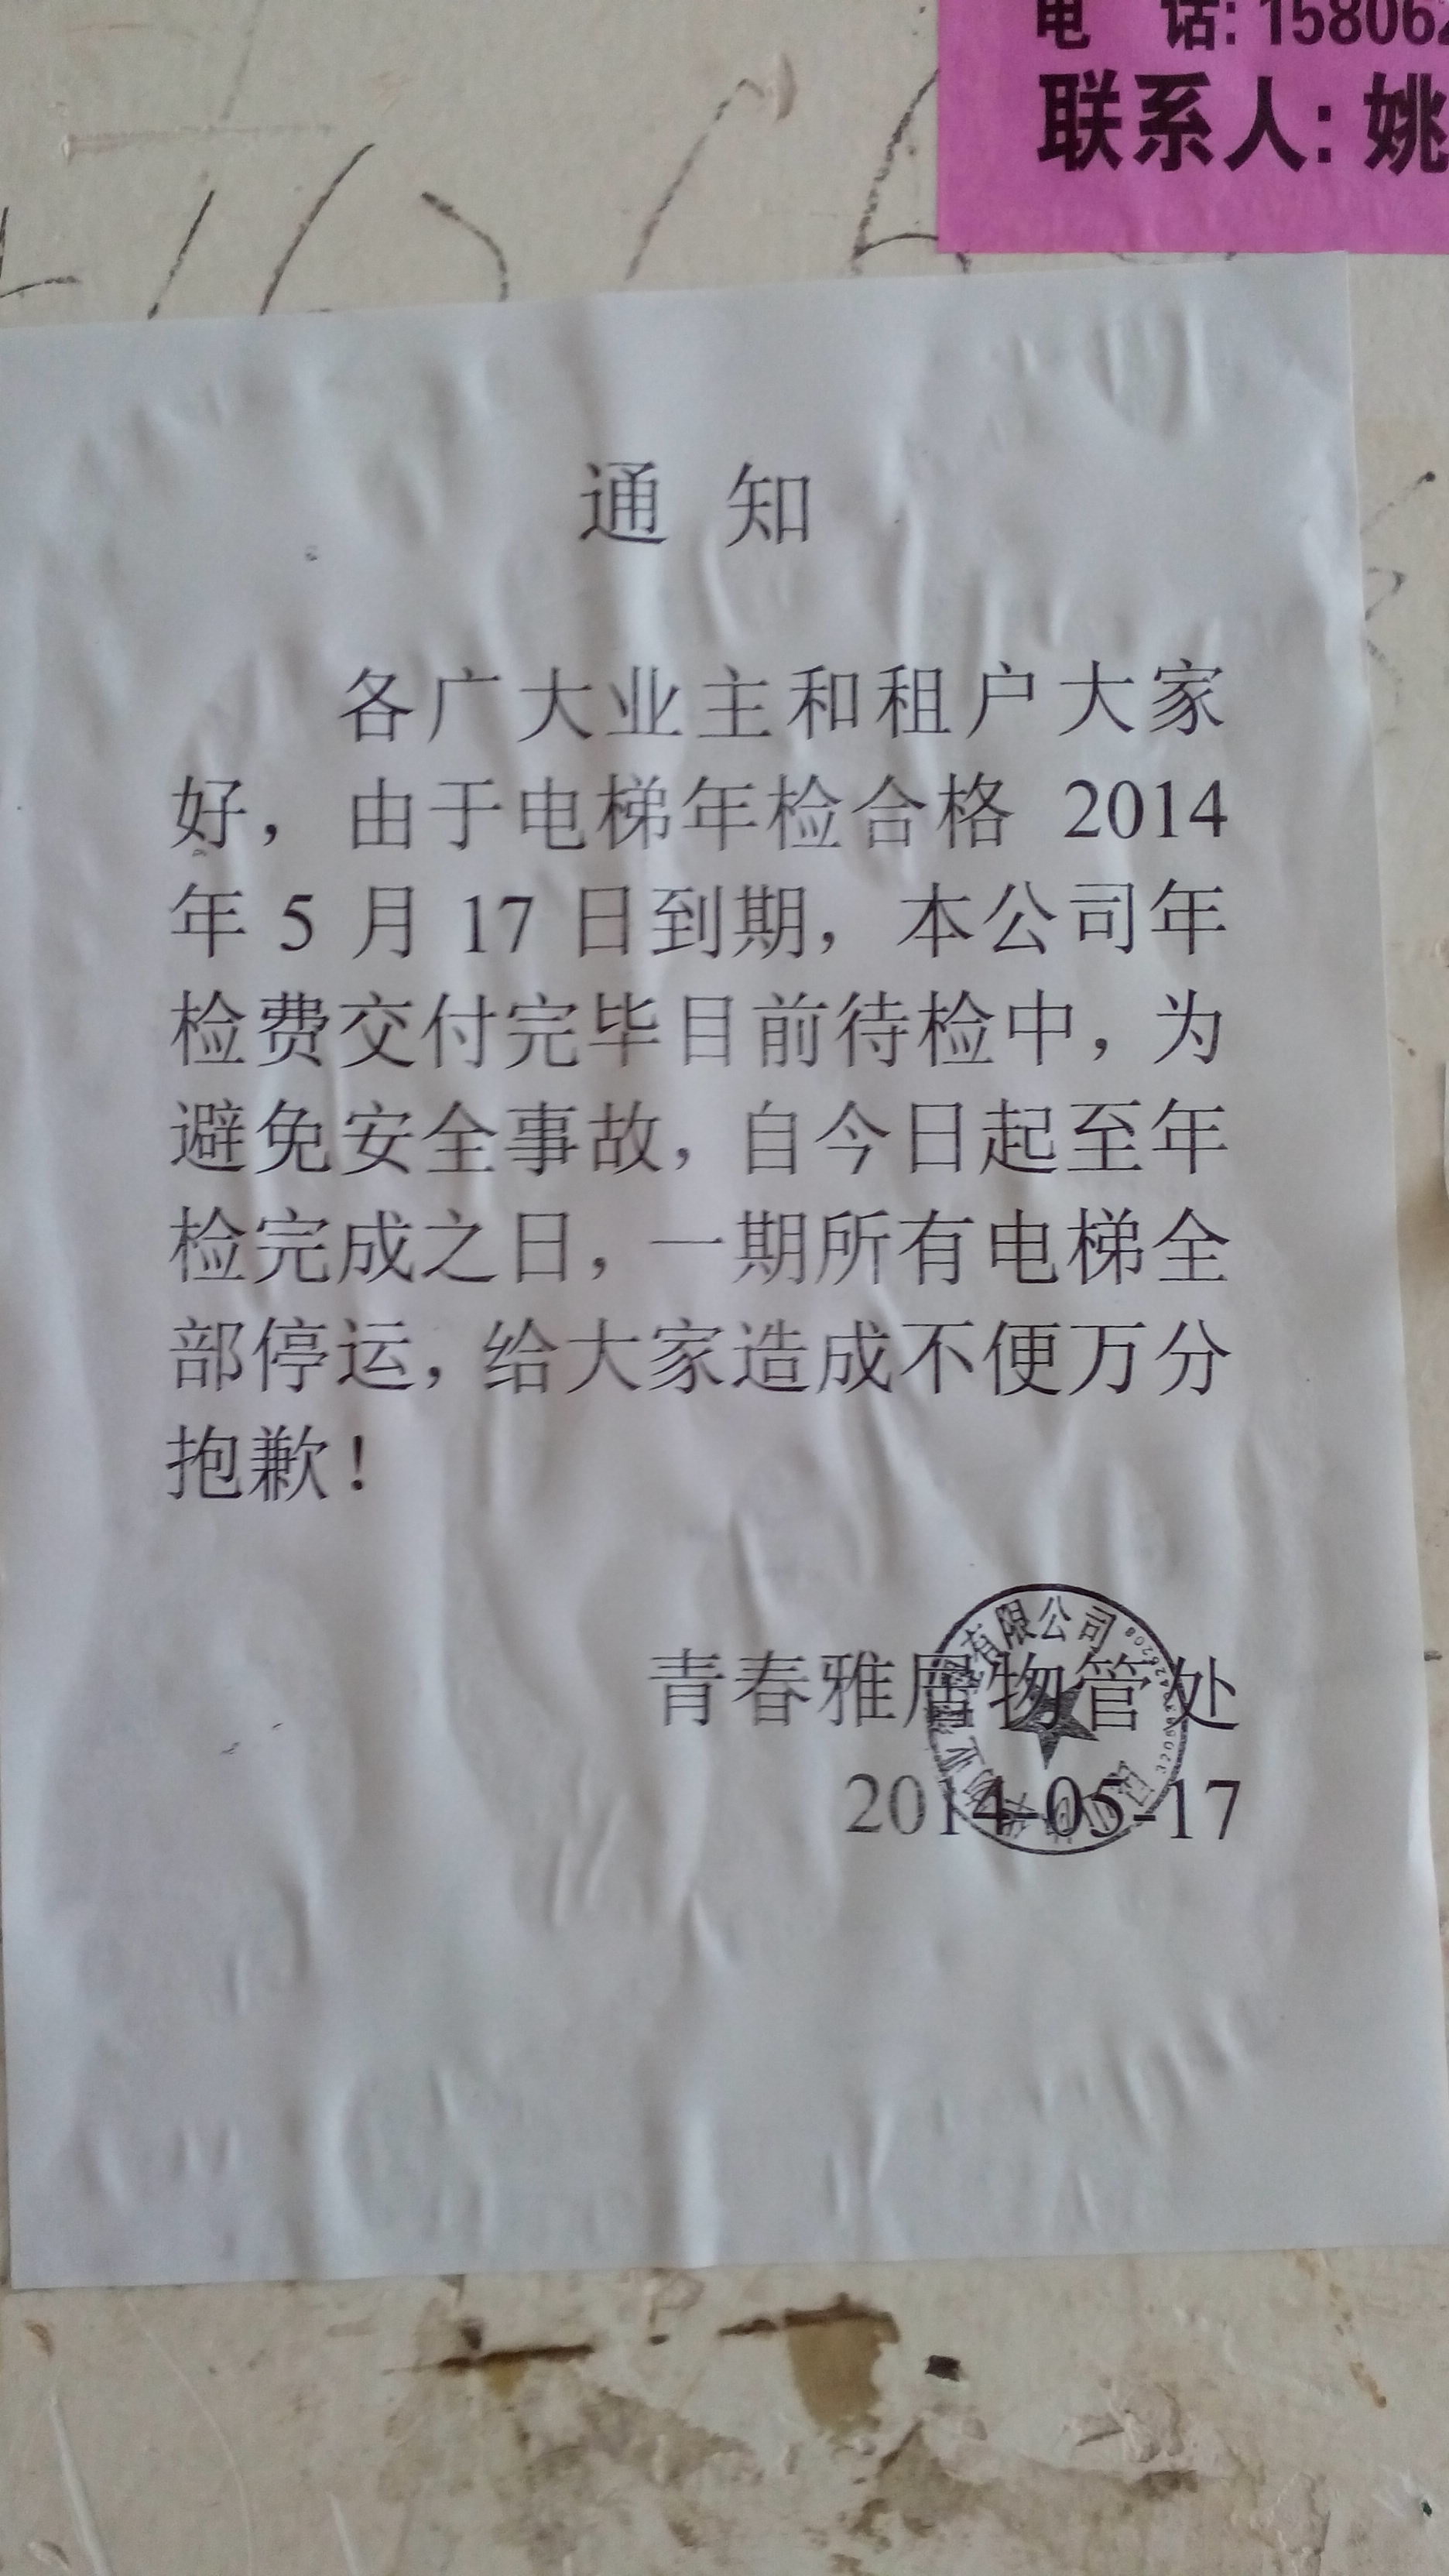 电 话: 15806
联系人: 姚
通 知
各广大业主和租户大家
好，由于电梯年检合格 2014
年 5 月 17 日到期，本公司年
检费交付完毕目前待检中，为
避免安全事故，自今日起至年
检完成之日，一期所有电梯全
部停运，给大家造成不便万分
抱歉！
有限公司
青春雅居物管处
2014-05-17